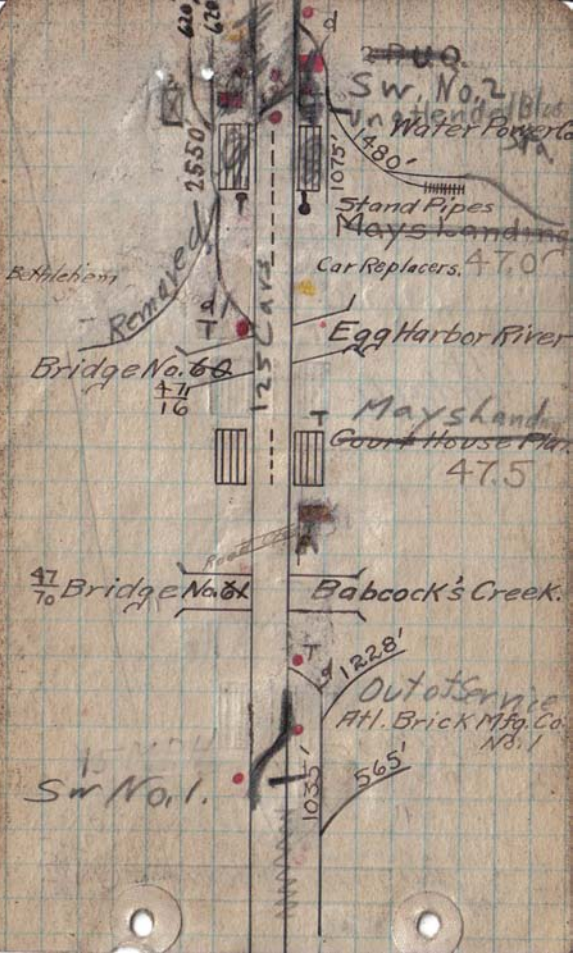 620'
620'
d
2 P.U.O.
Sw. No. 2
Unattended Blk
Sta
Water Power Co
2550'
1075'
1480'
Stand Pipes
Mays Landing
47.0
Bethlehem
Car Replacers.
Removed
d
T
125 Cars
Egg Harbor River
Bridge No. 60
47/16
Mays Landing
T
Court House Plat.
47.5
Road
47/70 Bridge No. 61
Babcock's Creek.
T
d
1228'
Out of Service
Atl. Brick Mfg. Co.
No. 1
15 MPH
Sw No. 1.
1035'
565'